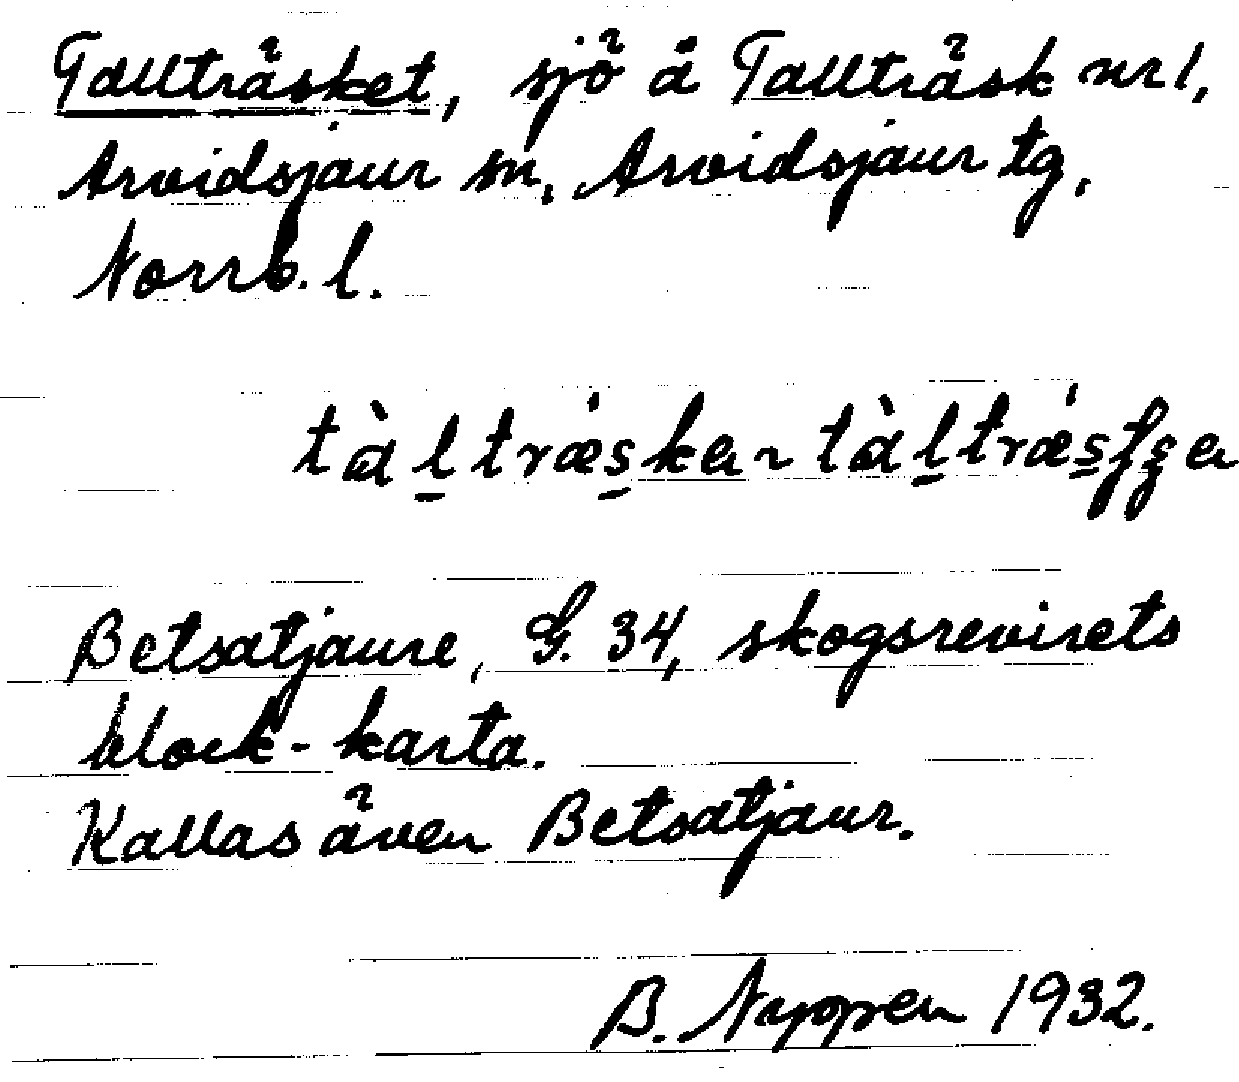 Tallträsket, sjö å Tallträsk nr 1,
Arvidsjaur sn, Arvidsjaur tg,
Norrb. l.
tàl̠træ̀s̠ka ~ tàl̠træ̀s̠ʃʒa
Betsatjaure, G. 34, skogsrevirets
block-karta.
Kallas även Betsatjaur.
B. Nyopen 1932.